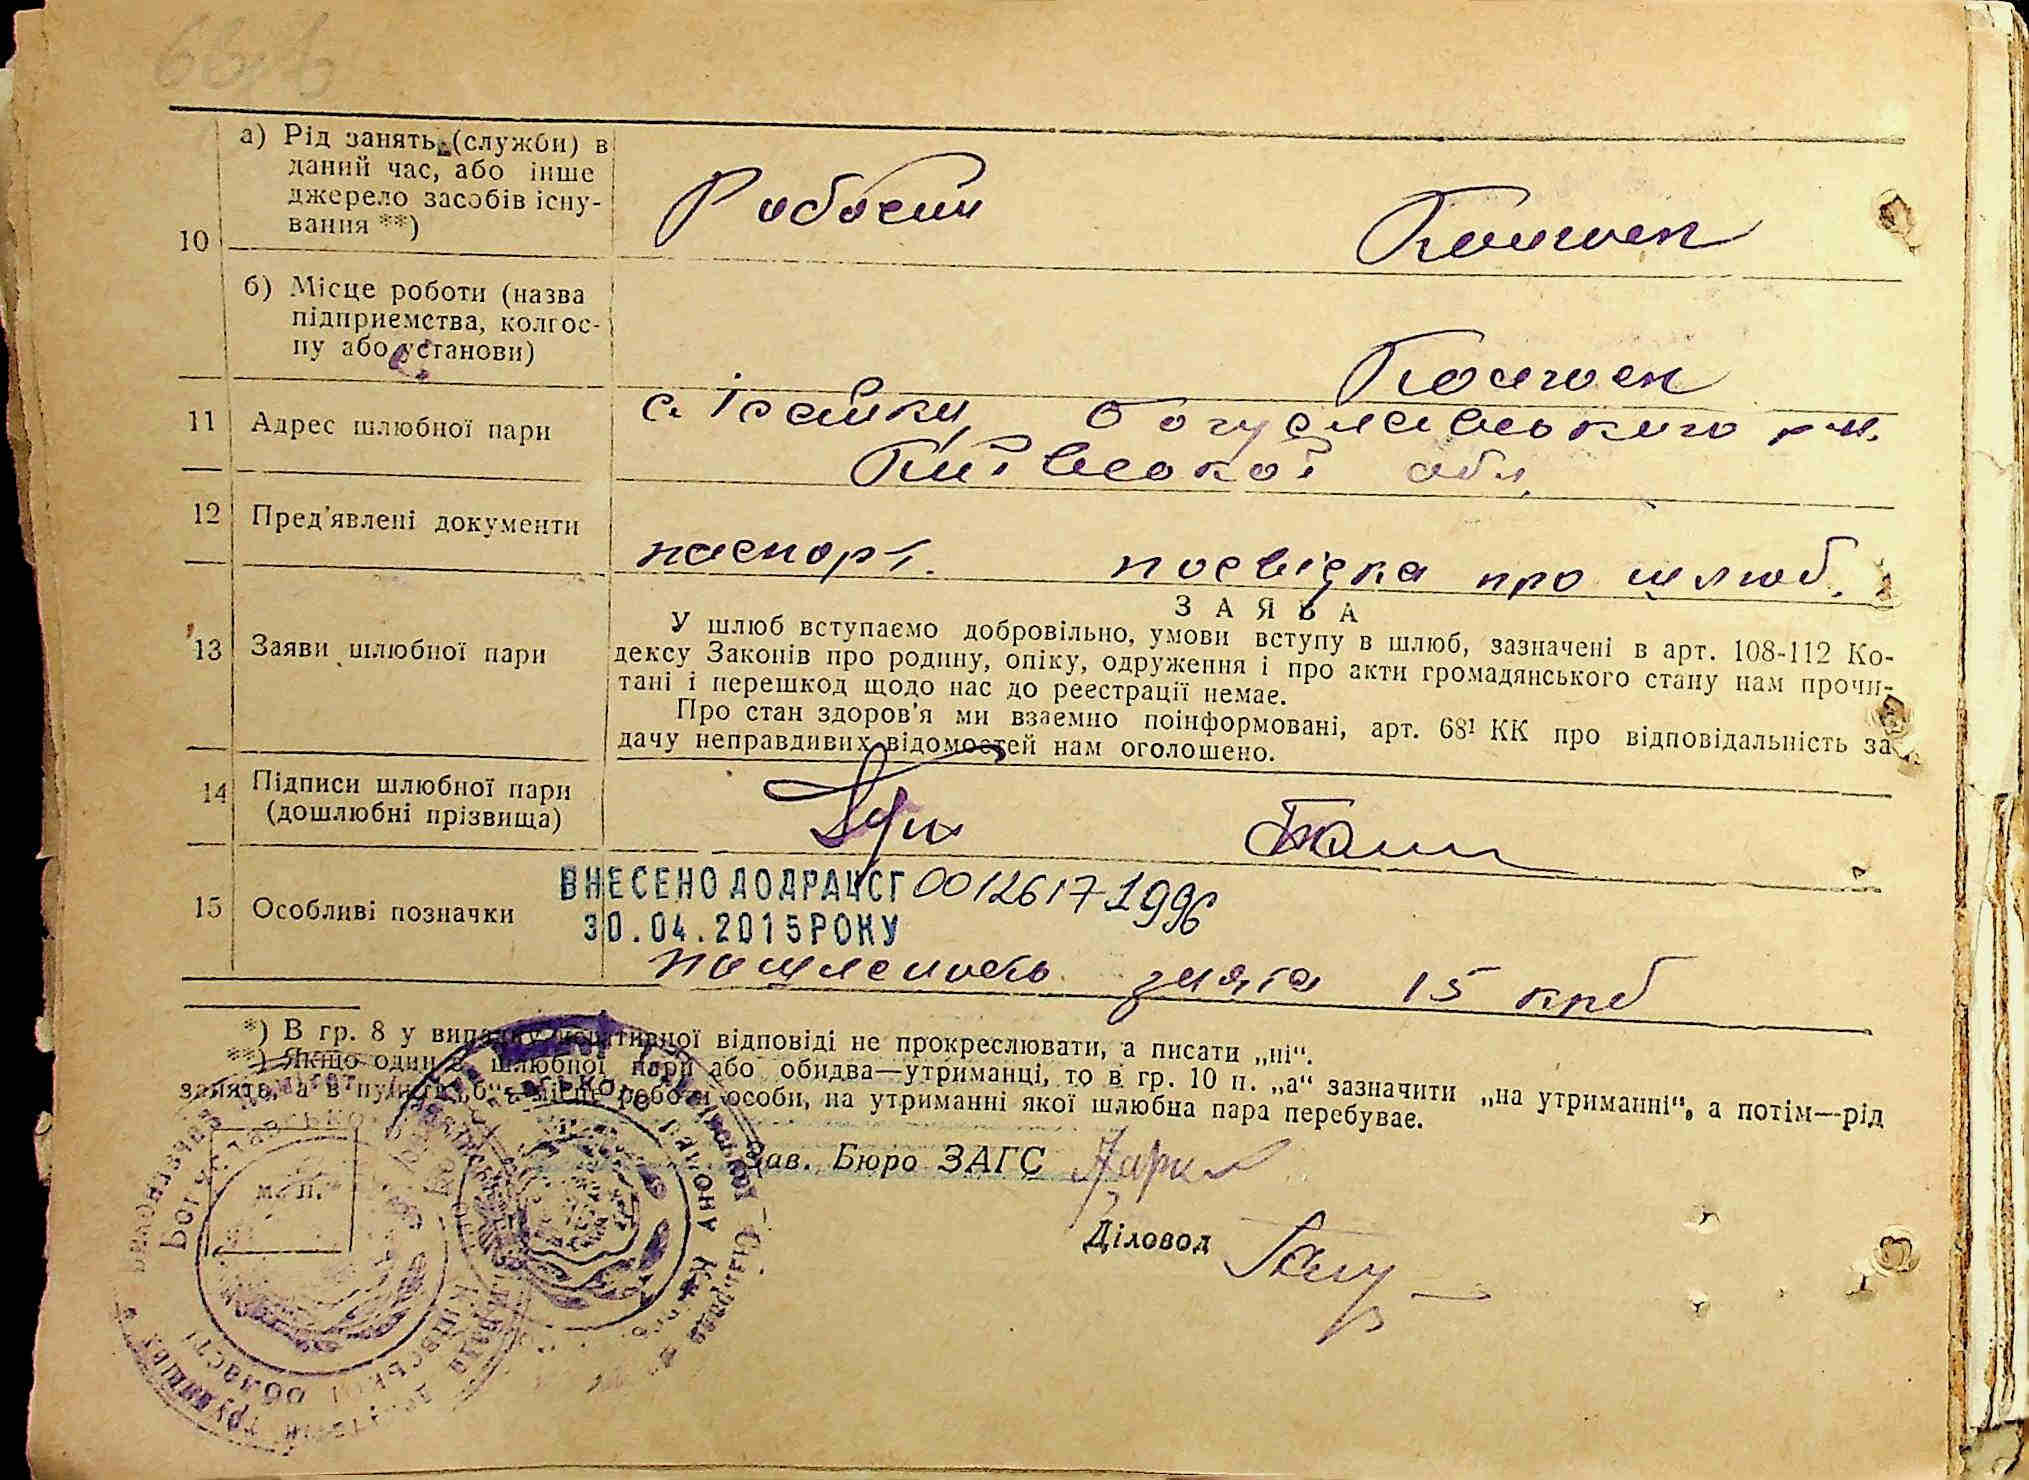 10
а) Рід занять (служби) в
даний час, або інше
джерело засобів існу-
вання **)
Робочий
Колгосп
б) Місце роботи (назва
підприємства, колгос-
пу або установи)
Колгосп
11 Адрес шлюбної пари
с. Ісайки, Богуславського р-н.
Київської обл.
12 Пред'явлені документи
паспорт. посвідка про шлюб.
ЗАЯВА
13 Заяви шлюбної пари
У шлюб вступаємо добровільно, умови вступу в шлюб, зазначені в арт. 108-112 Ко-
дексу Законів про родину, опіку, одруження і про акти громадянського стану нам прочи-
тані і перешкод щодо нас до реєстрації немає.
Про стан здоров'я ми взаємно поінформовані, арт. 68¹ КК про відповідальність за
дачу неправдивих відомостей нам оголошено.
14 Підписи шлюбної пари
(дошлюбні прізвища)
15 Особливі позначки
ВНЕСЕНО ДО ДРАЦСГ 00126171996
30.04.2015 РОКУ
знята 15 крб
*) В гр. 8 у випадку негативної відповіді не прокреслювати, а писати „ні“.
**) Якщо один з шлюбної пари або обидва—утриманці, то в гр. 10 п. „а“ зазначити „на утриманні“, а потім—рід
занять, а в пункті „б“ місце роботи особи, на утриманні якої шлюбна пара перебуває.
Зав. Бюро ЗАГС
м. п.
Діловод